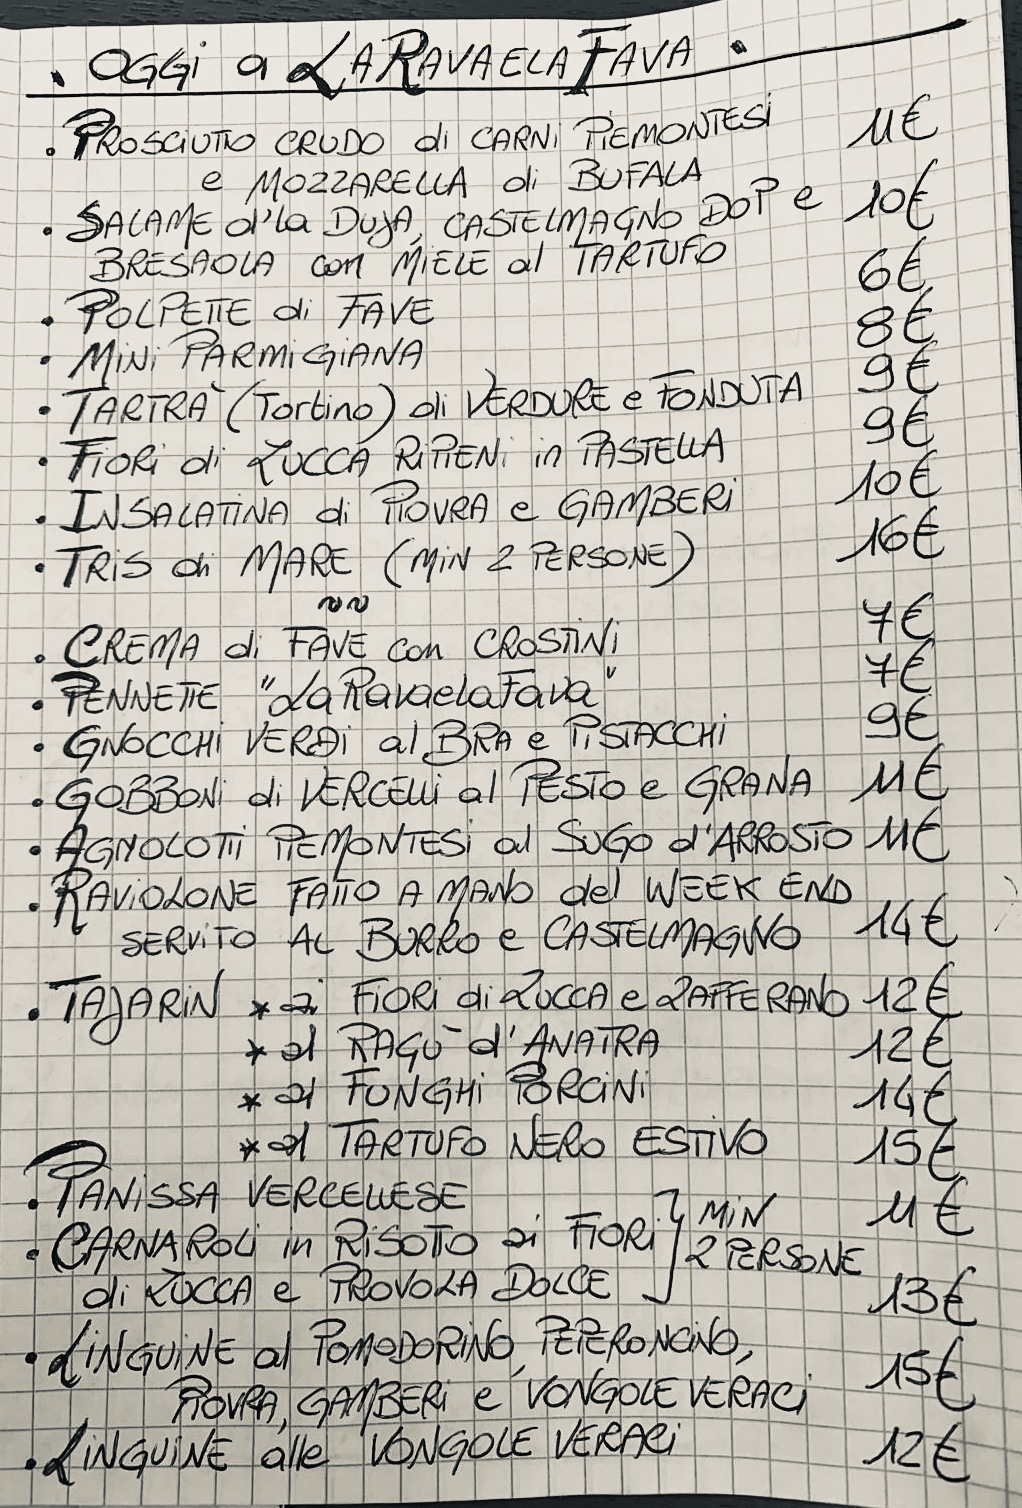 . OGGi a LA RAVAELA FAVA .
. PROSCIUTTO CRUDO di CARNi PiEMONTESi 11€
e MOZZARELLA di BUFALA
. SALAME d'la DUJA, CASTELMAGNO DOP e 10€
BRESAOLA con MiELE al TARTUFO
. POLPETTE di FAVE 6€
. MiNi PARMiGiANA 8€
. TARTRÀ (Tortino) di VERDURE e FONDUTA 9€
. FiORi di ZUCCA RiPiENi in PASTELLA 9€
. INSALATINA di PiOVRA e GAMBERi 10€
. TRiS di MARE (MiN 2 PERSONE) 16€
~~
. CREMA di FAVE con CROSTiNi 7€
. PENNETTE "LaRavaelaFava" 7€
. GNOCCHi VERDi al BRA e PiSTACCHi 9€
. GOBBONi di VERCELLi al PESTO e GRANA 11€
. AGNOLOTTi PiEMONTESi al SUGO d'ARROSTO 11€
. RAViOLONE FATTO A MANO del WEEK END
SERViTO AL BURRO e CASTELMAGNO 14€
. TAJARiN * ai FiORi di ZUCCA e ZAFFERANO 12€
* al RAGÙ d'ANATRA 12€
* ai FUNGHi PORCiNi 14€
* al TARTUFO NERO ESTiVO 15€
. PANiSSA VERCELLESE 11€
. CARNAROLi in RiSOTTO ai FiORi MiN
di ZUCCA e PROVOLA DOLCE 2 PERSONE 13€
. LiNGUiNE al POMODORiNO, PEPERONCiNO,
PiOVRA, GAMBERi e VONGOLE VERACi 15€
. LiNGUiNE alle VONGOLE VERACi 12€